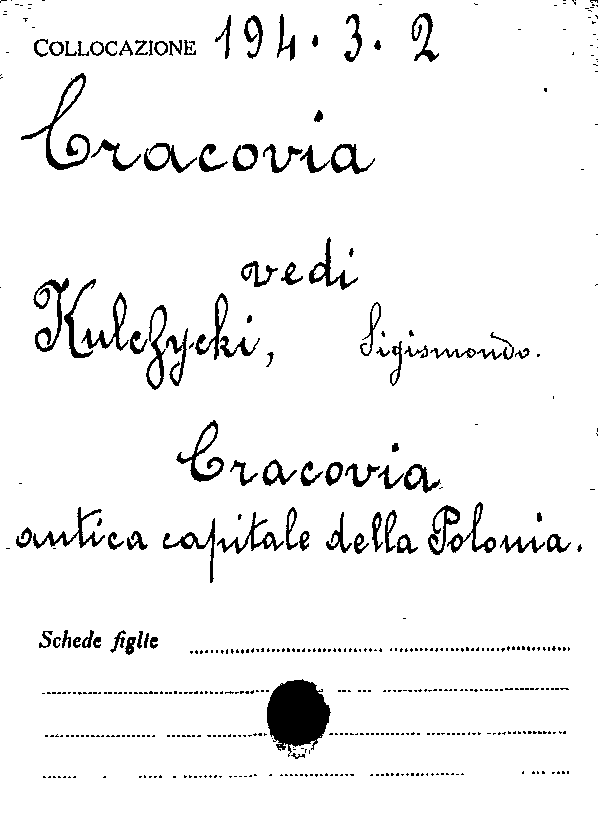 COLLOCAZIONE 194.3.2
Cracovia
vedi
Kulczycki, Sigismondo.
Cracovia
antica capitale della Polonia.
Schede figlie